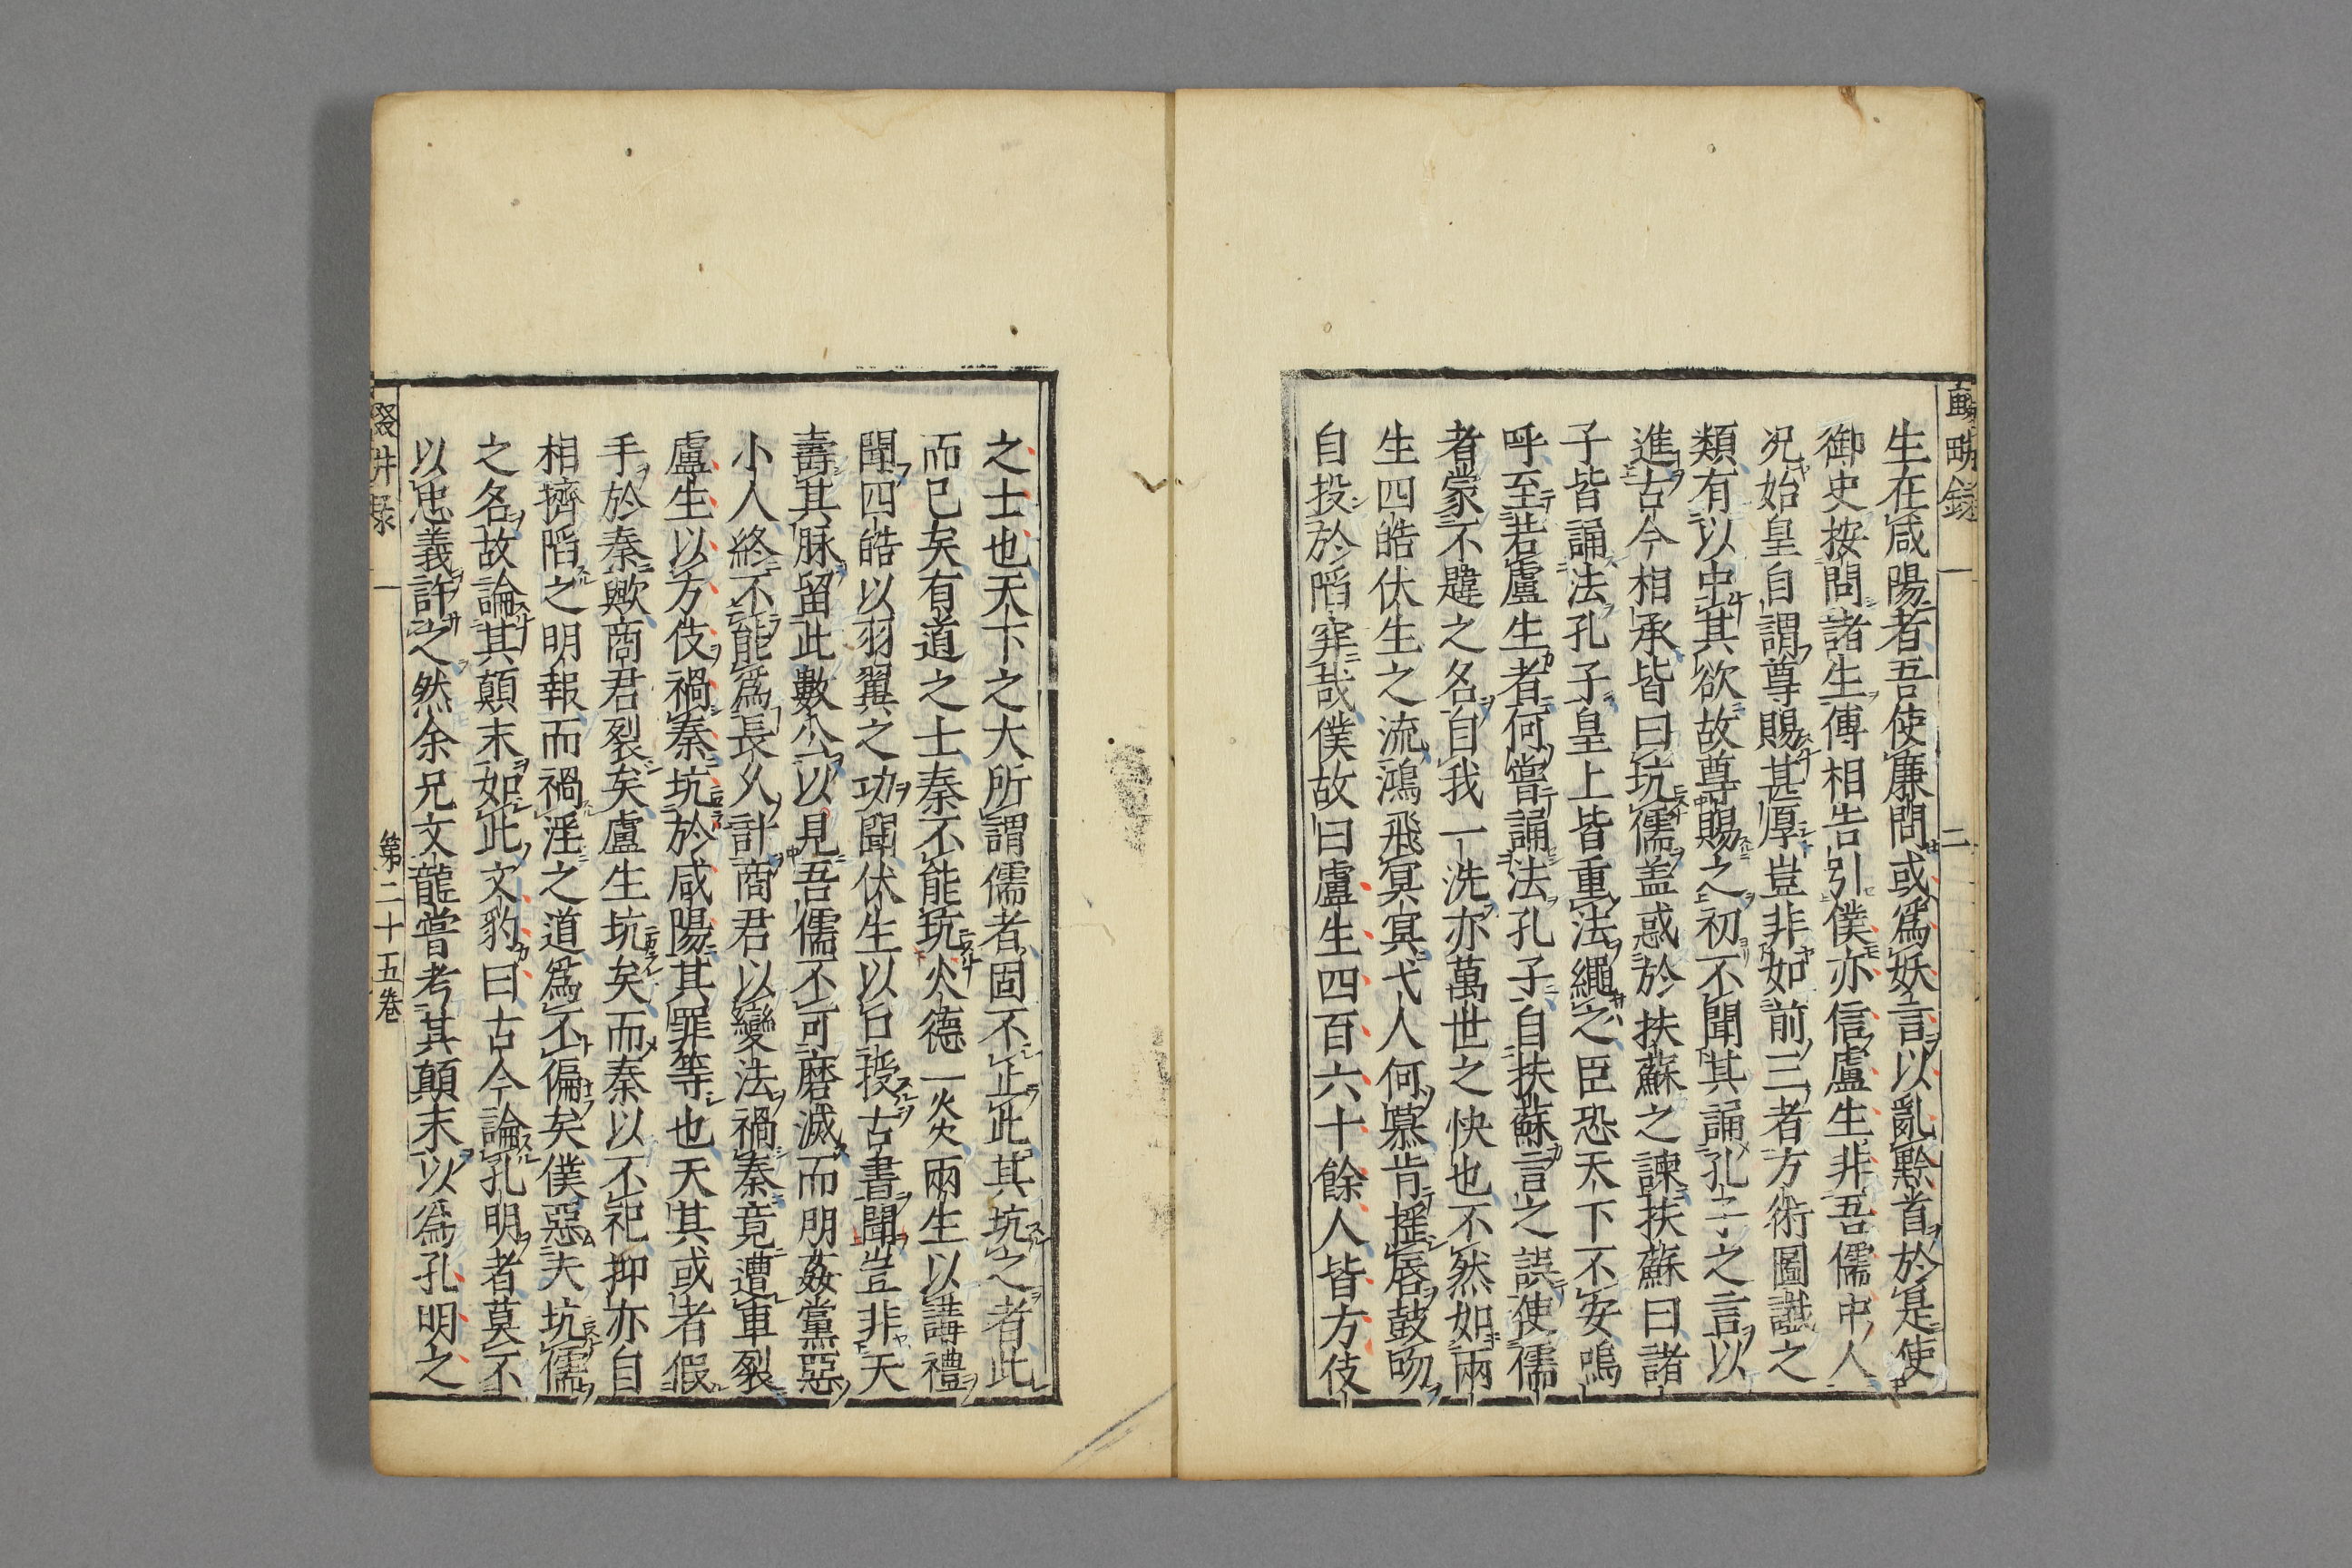 生在咸陽者吾使廉問或爲妖言以亂黔首於是使
御史按問諸生傳相告引僕亦信盧生非吾儒中人
况始皇自謂尊賜甚厚豈非如前三者方術圖讖之
類有以中其欲故尊賜之初不聞其誦孔子之言以
進古今相承皆曰坑儒盖惑於扶蘇之諫扶蘇曰諸
子皆誦法孔子皇上皆重法繩之臣恐天下不安嗚
呼至若盧生者何嘗誦法孔子自扶蘇言之誤使儒
者蒙不韙之名自我一洗亦萬世之快也不然如兩
生四皓伏生之流鴻飛冥冥弋人何慕肯摇唇鼓吻
自投於陷穽哉僕故曰盧生四百六十餘人皆方伎
二
之士也天下之大所謂儒者固不止此其坑之者此
而已矣有道之士秦不能坑火德一炎兩生以講禮
聞四皓以羽翼之功聞伏生以口授古書聞豈非天
壽其脉留此數公以見吾儒不可磨滅而朋姦黨惡
小人終不能爲長久計商君以變法禍秦竟遭車裂
盧生以方伎禍秦坑於咸陽其罪等也天其或者假
手於秦歟商君裂矣盧生坑矣而秦以不祀抑亦自
相擠陷之明報而禍淫之道爲不偏矣僕惡夫坑儒
之名故論其顛末如此文豹曰古今論孔明者莫不
以忠義許之然余兄文龍嘗考其顛末以爲孔明之
第二十五卷